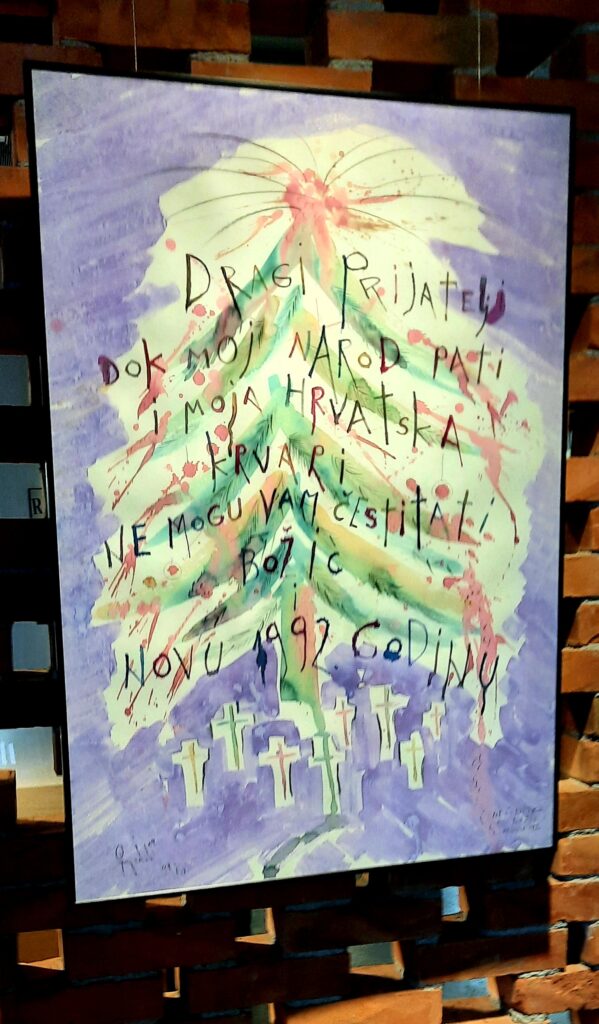 DRAGI PRIJATELJ
DOK MOJ NAROD PATI
I MOJA HRVATSKA
KRVARI
NE MOGU VAM ČESTITATI
BOŽIĆ
i
NOVU 1992. GODINU
R